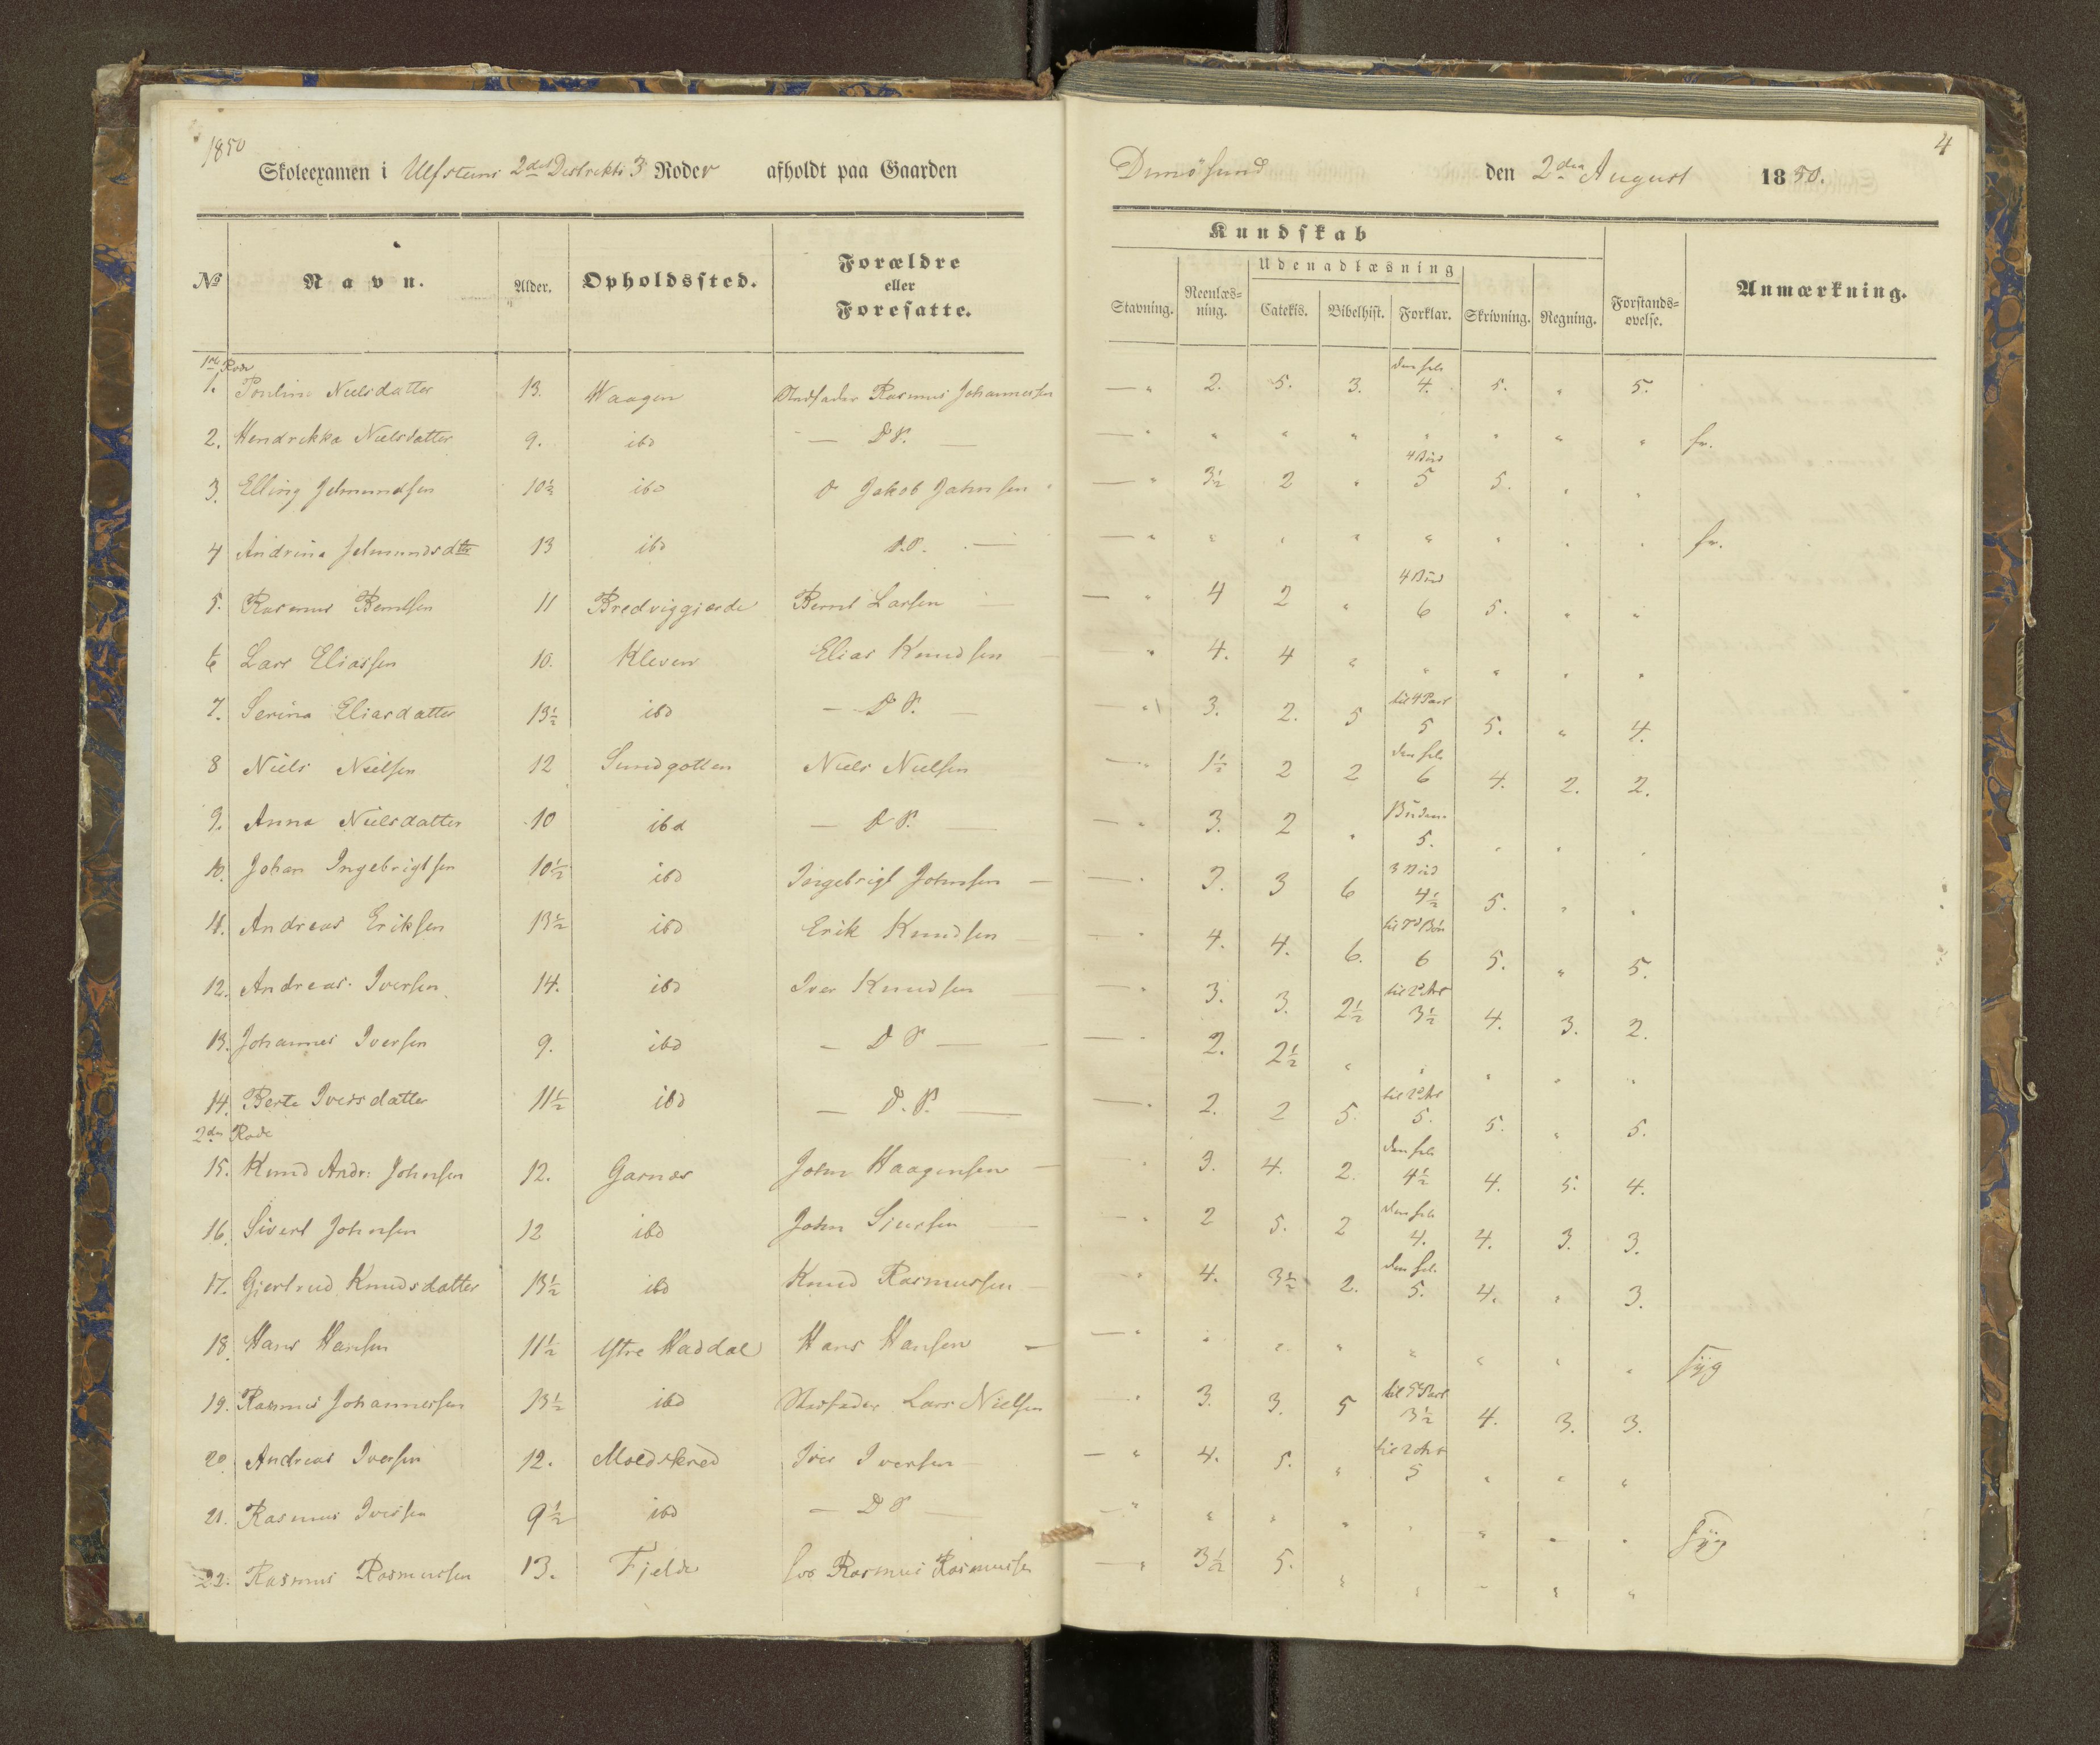 1850
Skoleexamen i Ulfsteens 2det Distrikts 3 Roder afholdt paa Gaarden
Dimösund den 2den August 1850.
4
Kundskab
Udenadlæsning
№ Navn. Alder. Opholdssted. Forældre eller Foresatte.
Stavning. Reenlæsning. Catekis. Bibelhist. Forklar. Skrivning. Regning. Forstandsøvelse. Anmærkning.
1ste Rode
1. Pouline Nielsdatter 13. Waagen Stedfader Rasmus Johannessen — " 2. 5. 3. den hele 4. 5. " 5.
2. Hendrikka Nielsdatter 9. ibd — D.P. — — " " " " " " " " fr.
3. Elling Jelmundsen 10½ ibd Jakob Johnsen — " 3½ 2 " 4 Bud 5 5. " "
4 Andrine Jelmundsdtr 13 ibd D.P. — — " " " " " " " " fr.
5. Rasmus Berntsen 11 Bredviggjerde Bernt Larsen — " 4 2 " 4 Bud 6 5. " "
6 Lars Eliassen 10. Kleven Elias Knudsen — " 4. 4 " " " " "
7. Serina Eliasdatter 13½ ibd — D.P. — — " 3. 2. 5 til 4 Part 5 5. " 4.
8 Niels Nielsen 12 Sundgotten Niels Nielsen — " 1½ 2 2 den hele 6 4. 2. 2.
9. Anna Nielsdatter 10 ibd — D.P. — — " 3. 2 " Budene 5. " " "
10. Johan Ingebrigtsen 10½ ibd Ingebrigt Johnsen — — " 3. 3 6 3 Bud 4½ 5. " "
11. Andreas Eriksen 13½ ibd Erik Knudsen — — " 4. 4. 6. til 7d Bøn 6 5. " 5.
12. Andreas Iversen 14. ibd Iver Knudsen — — " 3. 3. 2½ til 2d Art 3½ 4. 3. 2.
13. Johannes Iversen 9. ibd — D P — — " 2. 2½ " " " " "
14. Berte Iversdatter 11½ ibd — D.P. — — " 2. 2 5. til 2d Art 5. 5. " 5.
2den Rode
15. Knud Andr: Johnsen 12. Garnæs John Haagensen — — " 3. 4. 2. den hele 4½ 4. 5. 4.
16. Sivert Johnsen 12 ibd John Sjursen — — " 2 5. 2 den hele 4. 4. 3. 3.
17. Gjertrud Knudsdatter 13½ ibd Knud Rasmussen — — " 4. 3½ 2. den hel. 5. 4. " 3.
18. Hans Hansen 11½ Ytre Haddal Hans Hansen — — " " " " " " " " Syg
19. Rasmus Johannessen 13½ ibd Stedfader Lars Nielsen — " 3. 3. 5 til 5 Part 3½ 4. 3. 3.
20 Andreas Iversen 12. Moldskred Iver Iversen — " 4. 5. " til 2d Art 5 " " "
21. Rasmus Iversen 9½ ibd — D P — — " " " " " " " " Syg
22. Rasmus Rasmussen 13. Fjelde hos Rasmus Rasmussen — " 3½ 5. " " " " "